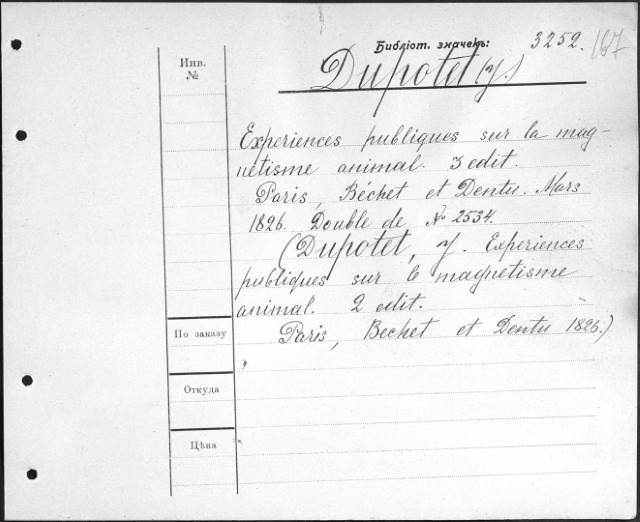 Библіот. значекъ: 3252. 167
Инв.
№
Dupotet (J.)
Experiences publiques sur la mag-
netisme animal. 3 edit.
Paris, Béchet et Dentu. Mars
1826. Double de № 2534.
(Dupotet, J. Experiences
publiques sur le magnetisme
animal. 2 edit.
Paris, Bechet et Dentu 1826.)
По заказу
Откуда
Цѣна